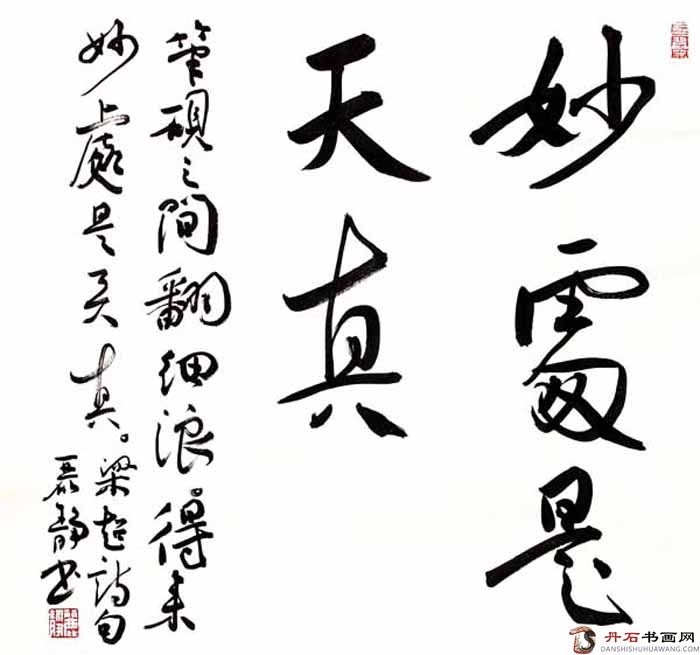 妙處是
天真
筆硯之間翻細浪。得来
妙處是天真。梁超詩句
静书
丹石书画网
DANSHISHUHUAWANG.COM